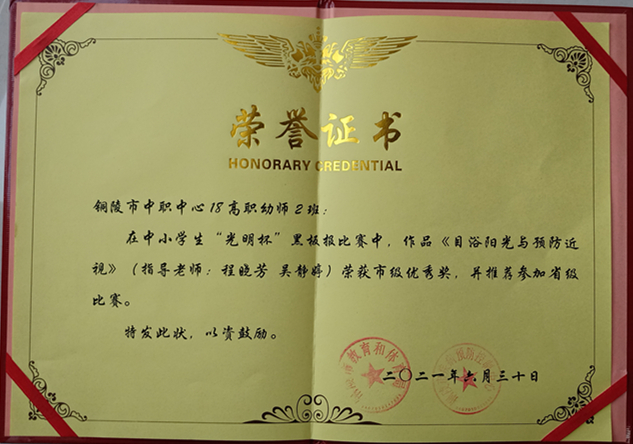 荣誉证书
HONORARY CREDENTIAL
铜陵市中职中心18高职幼师2班：
在中小学生“光明杯”黑板报比赛中，作品《目浴阳光与预防近
视》（指导老师：程晓芳 吴静婷）荣获市级优秀奖，并推荐参加省级
比赛。
特发此状，以资鼓励。
二〇二一年六月三十日
教育和体育